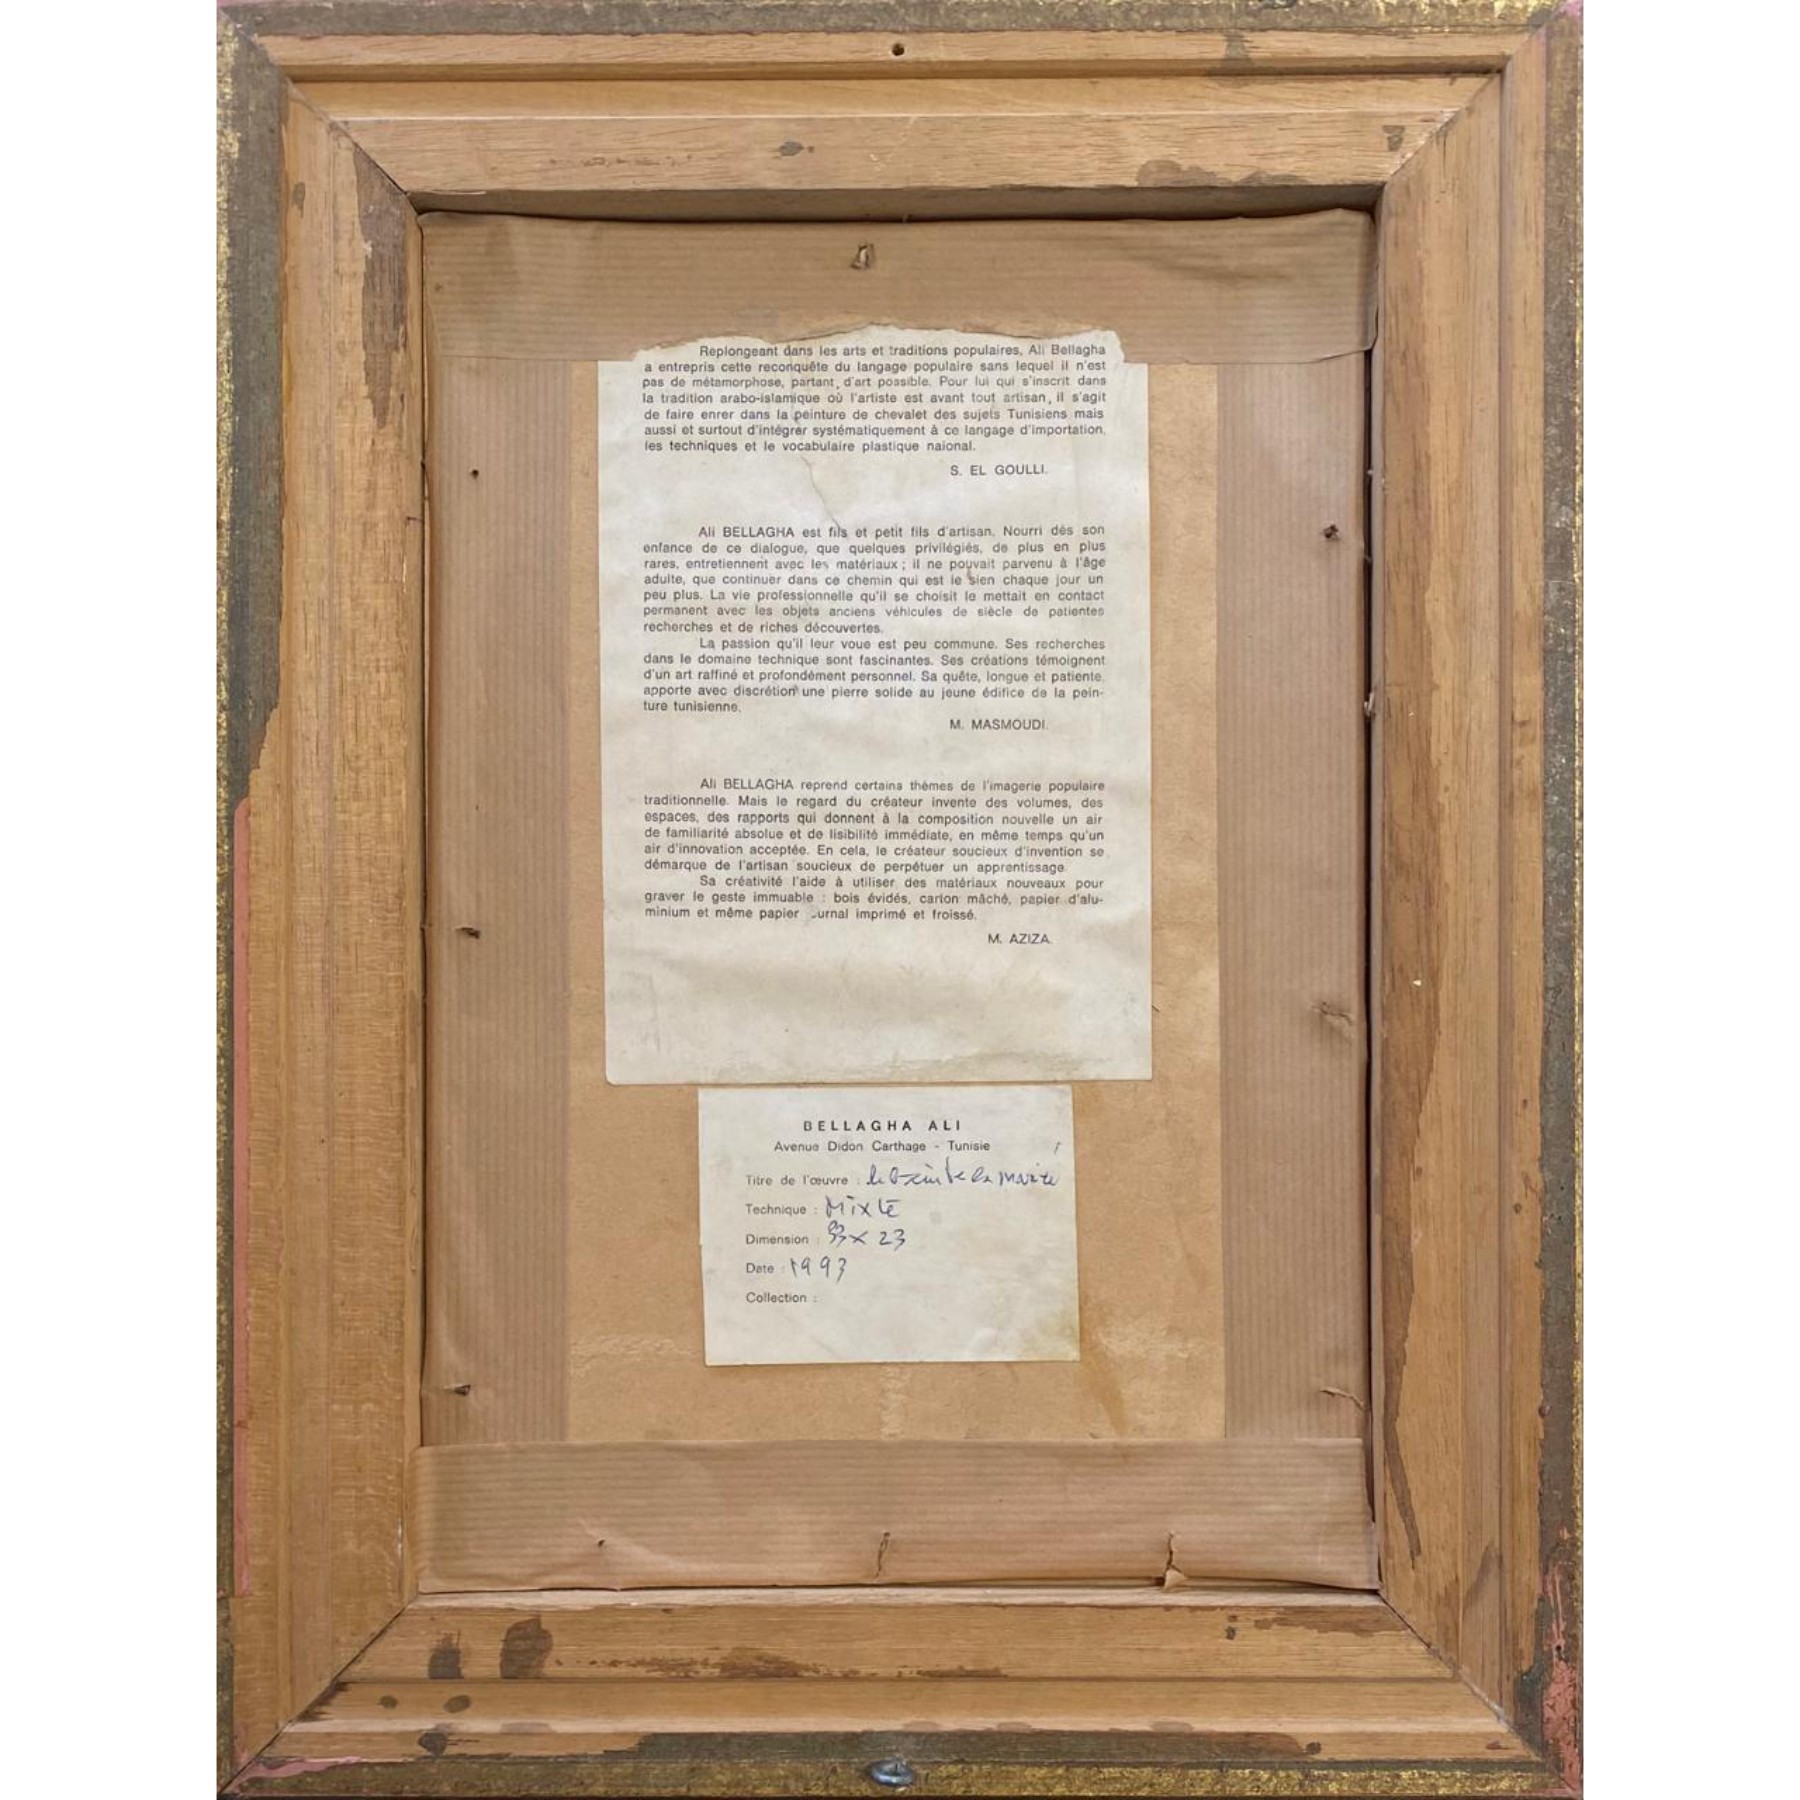 Replongeant dans les arts et traditions populaires, Ali Bellagha
a entrepris cette reconquête du langage populaire sans lequel il n'est
pas de métamorphose, partant, d'art possible. Pour lui qui s'inscrit dans
la tradition arabo-islamique où l'artiste est avant tout artisan, il s'agit
de faire enrer dans la peinture de chevalet des sujets Tunisiens mais
aussi et surtout d'intégrer systématiquement à ce langage d'importation,
les techniques et le vocabulaire plastique naional.
S. EL GOULLI.
Ali BELLAGHA est fils et petit fils d'artisan. Nourri dès son
enfance de ce dialogue, que quelques privilégiés, de plus en plus
rares, entretiennent avec les matériaux ; il ne pouvait parvenu à l'âge
adulte, que continuer dans ce chemin qui est le sien chaque jour un
peu plus. La vie professionnelle qu'il se choisit le mettait en contact
permanent avec les objets anciens véhicules de siècle de patientes
recherches et de riches découvertes.
La passion qu'il leur voue est peu commune. Ses recherches
dans le domaine technique sont fascinantes. Ses créations témoignent
d'un art raffiné et profondément personnel. Sa quête, longue et patiente,
apporte avec discrétion une pierre solide au jeune édifice de la pein-
ture tunisienne.
M. MASMOUDI.
Ali BELLAGHA reprend certains thèmes de l'imagerie populaire
traditionnelle. Mais le regard du créateur invente des volumes, des
espaces, des rapports qui donnent à la composition nouvelle un air
de familiarité absolue et de lisibilité immédiate, en même temps qu'un
air d'innovation acceptée. En cela, le créateur soucieux d'invention se
démarque de l'artisan soucieux de perpétuer un apprentissage.
Sa créativité l'aide à utiliser des matériaux nouveaux pour
graver le geste immuable : bois évidés, carton mâché, papier d'alu-
minium et même papier journal imprimé et froissé.
M. AZIZA.
BELLAGHA ALI
Avenue Didon Carthage - Tunisie
Titre de l'œuvre : le bain de la mariée
Technique : Mixte
Dimension : 33 x 23
Date : 1993
Collection :